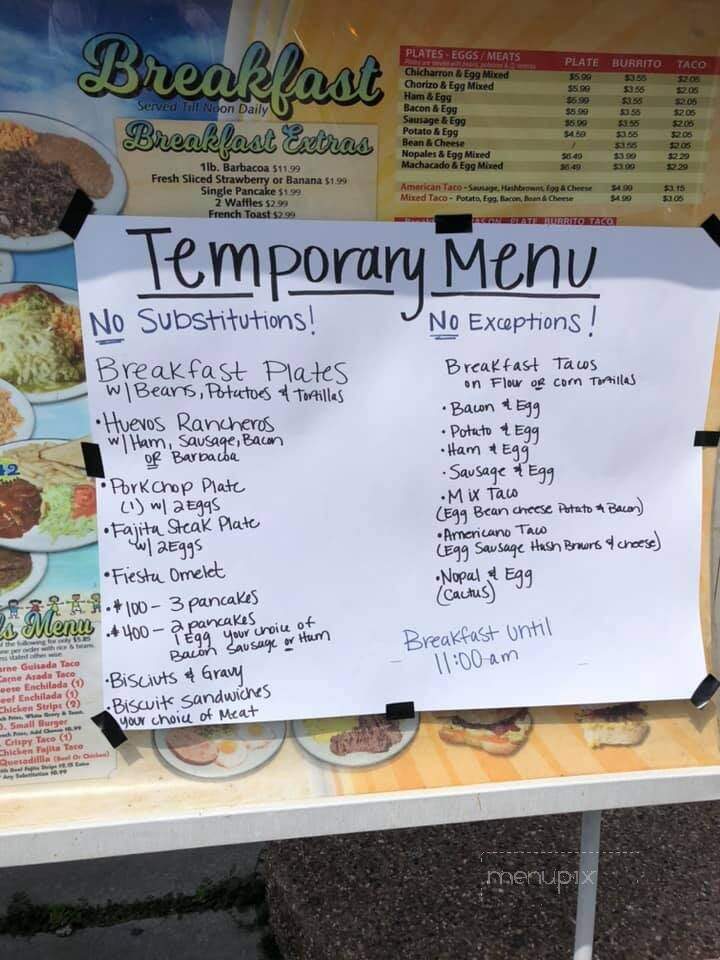 Breakfast
Served Till Noon Daily
Breakfast Extras
1lb. Barbacoa $11.99
Fresh Sliced Strawberry or Banana $1.99
Single Pancake $1.99
2 Waffles $2.99
French Toast $2.99
PLATES - EGGS / MEATS PLATE BURRITO TACO
Chicharron & Egg Mixed $5.99 $3.55 $2.05
Chorizo & Egg Mixed $5.99 $3.55 $2.05
Ham & Egg $5.99 $3.55 $2.05
Bacon & Egg $5.99 $3.55 $2.05
Sausage & Egg $5.99 $3.55 $2.05
Potato & Egg $4.59 $3.55 $2.05
Bean & Cheese / $3.55 $2.05
Nopales & Egg Mixed $6.49 $3.99 $2.29
Machacado & Egg Mixed $6.49 $3.99 $2.29
American Taco - Sausage, Hashbrowns, Egg & Cheese $4.99 $3.15
Mixed Taco - Potato, Egg, Bacon, Bean & Cheese $4.99 $3.05
PLATE BURRITO TACO
Temporary Menu
No Substitutions!
Breakfast Plates
w/ Beans, Potatoes & Tortillas
• Huevos Rancheros
w/ Ham, Sausage, Bacon
OR Barbacoa
• Porkchop Plate
(1) w/ 2 Eggs
• Fajita Steak Plate
w/ 2 Eggs
• Fiesta Omelet
• $100 - 3 pancakes
• $400 - 2 pancakes
1 Egg your choice of
Bacon Sausage or Ham
• Bisciuts & Gravy
• Biscuit Sandwiches
your choice of Meat
No Exceptions!
Breakfast Tacos
on Flour OR corn Tortillas
• Bacon & Egg
• Potato & Egg
• Ham & Egg
• Sausage & Egg
• Mix Taco
(Egg Bean cheese Potato & Bacon)
• Americano Taco
(Egg Sausage Hash Browns & cheese)
• Nopal & Egg
(cactus)
Breakfast Until
11:00 am
42
s Menu
of the following for only $5.85
per order with rice & beans,
stated other wise
rne Guisada Taco
Carne Asada Taco
eese Enchilada (1)
eef Enchilada (1)
Chicken Strips (2)
. Small Burger
Crispy Taco (1)
Chicken Fajita Taco
Quesadilla (Beef Or Chicken)
Any Substitution $0.99
menupix